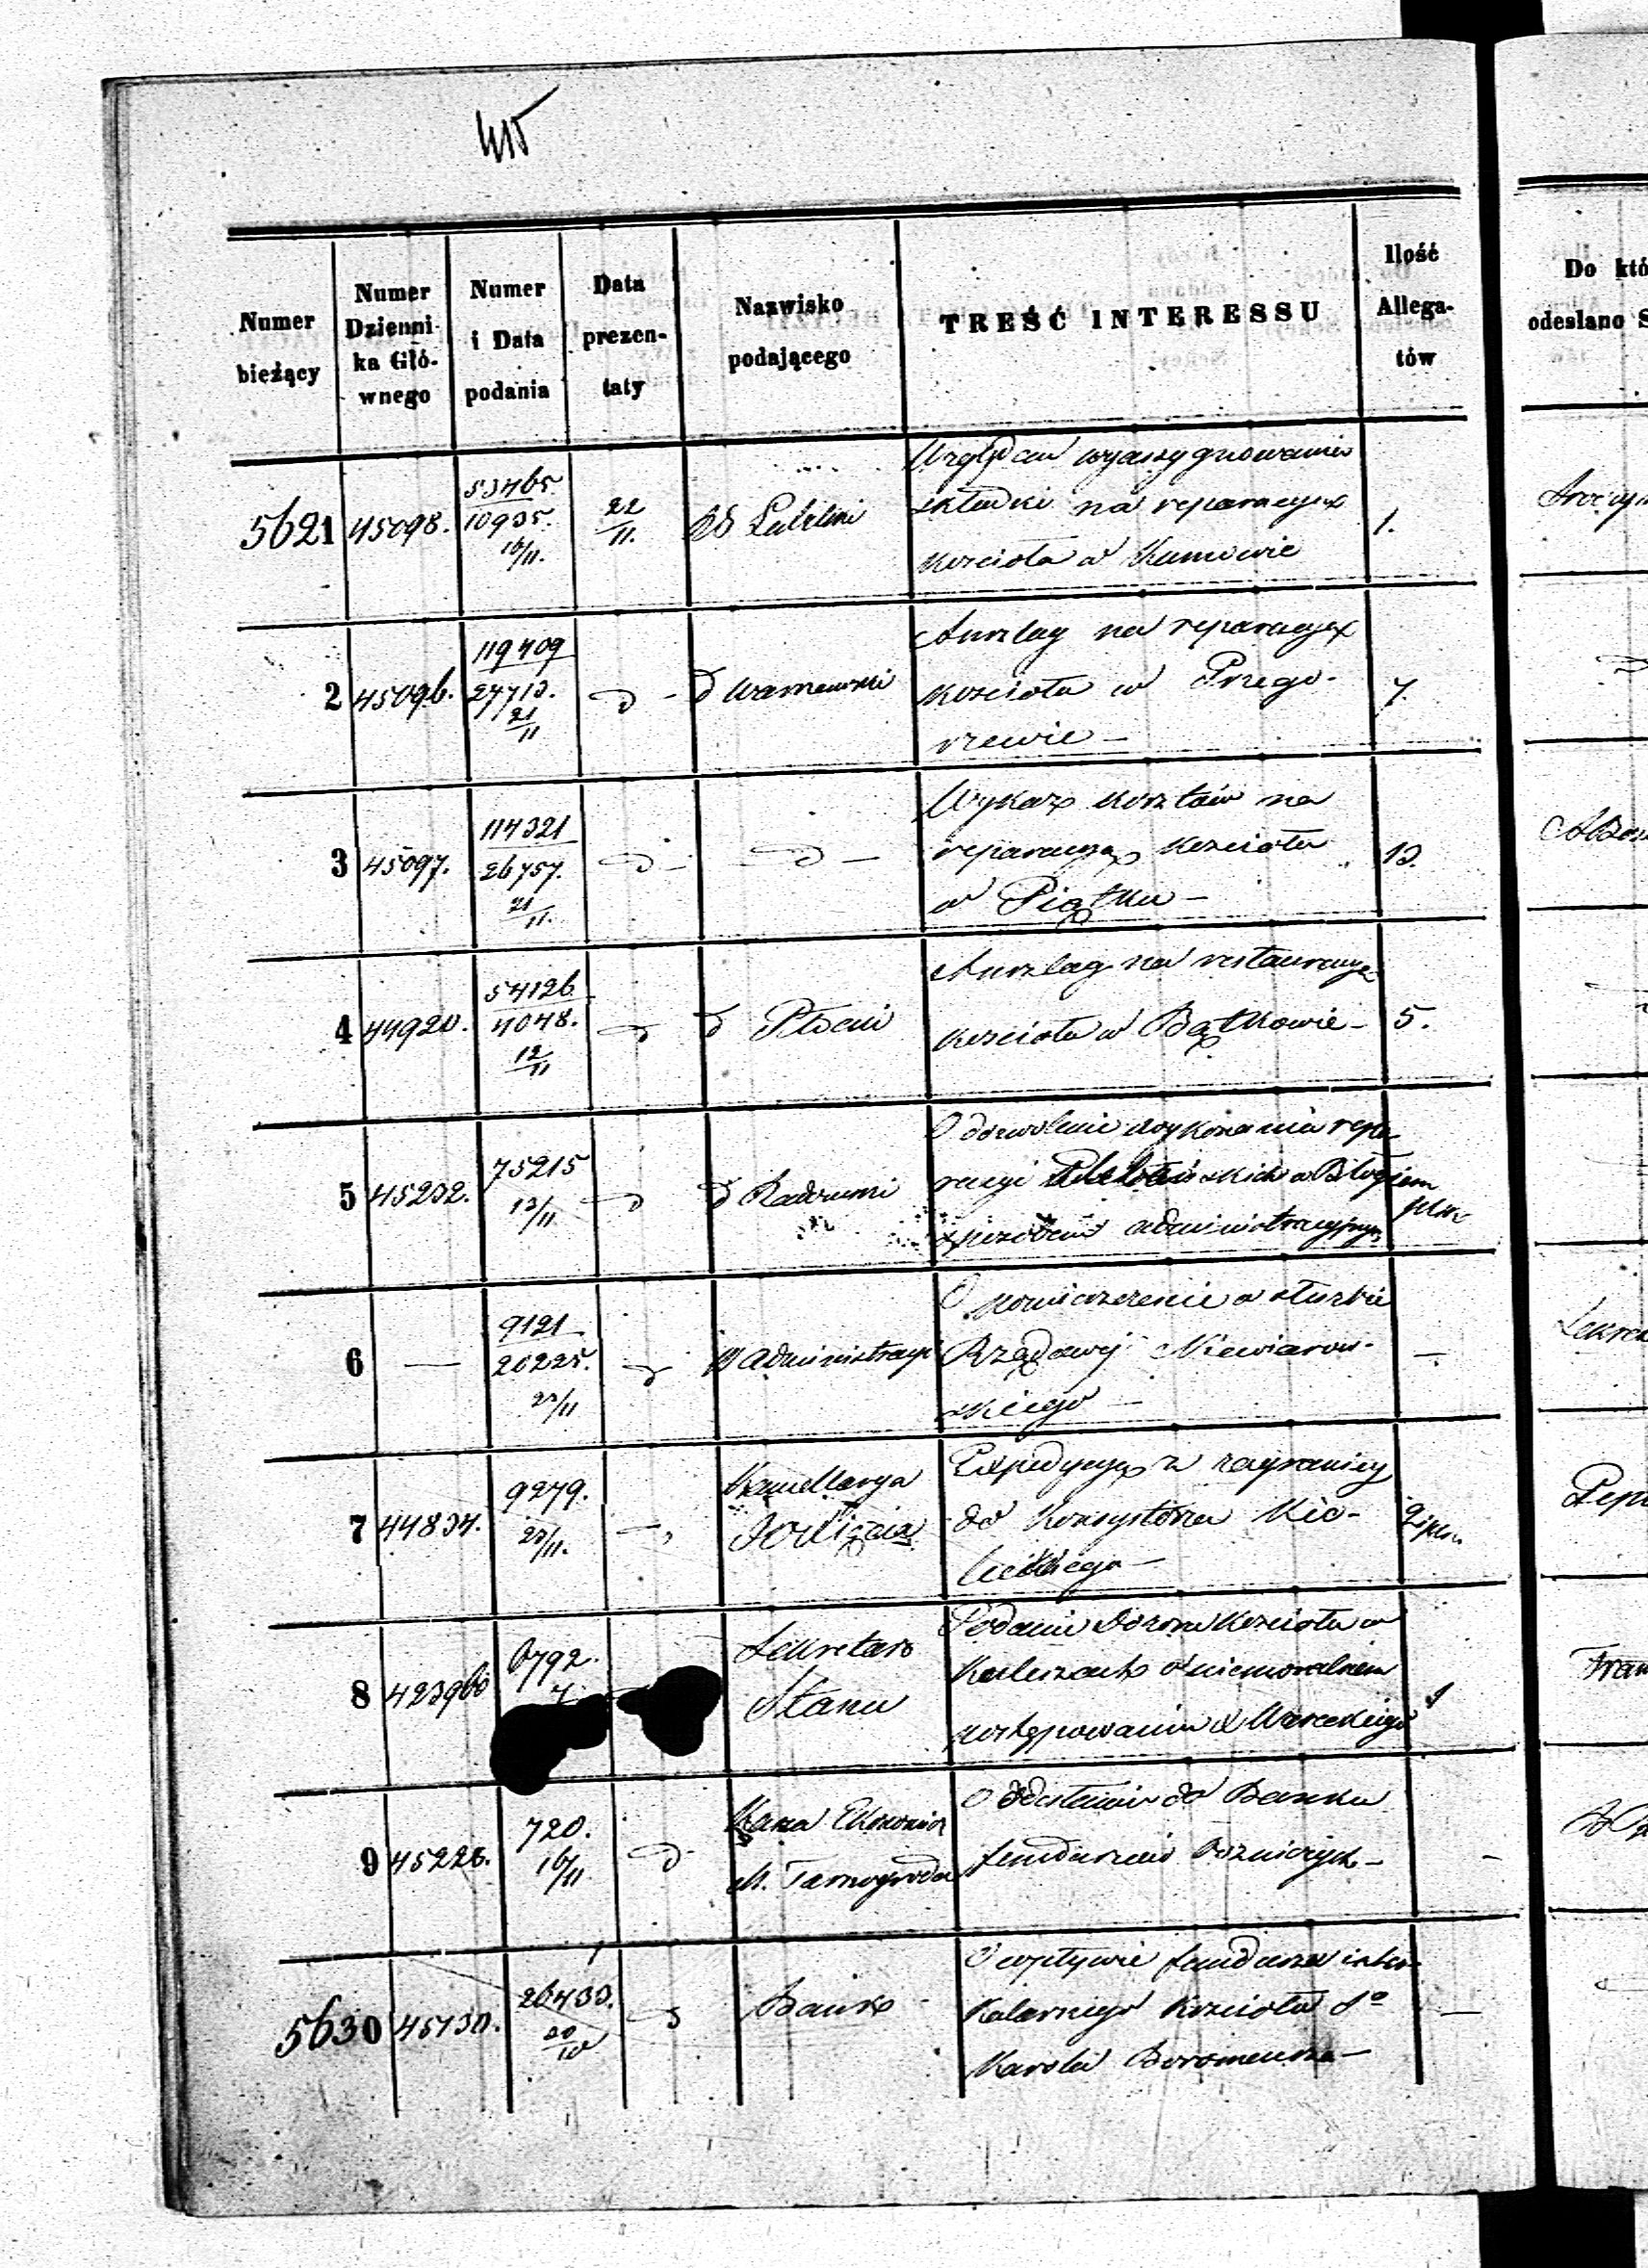 Numer bieżący
Numer Dzienni-ka Głó-wnego
Numer i Data podania
Data prezen-taty
Nazwisko podającego
TREŚĆ INTERESSU
Ilość Allega-tów
Do któ
odesłano S
5621 45098. 53465 10935. 16/11. 22/11. Lublini
Względem wyassygnowania
składki na reparacyę
kościoła w Kumowie
1.
2 45096. 119409 27713. 21/11 d Warszawski
Anszlag na reparacyę
kościoła w Przego-
rzewie –
7.
3 45097. 114321 26757. 21/11.
Wykaz kosztów na
reparacyą kościoła
w Piątku –
13.
4 44920. 54126 4048. 12/11 d Płocki
Anszlag na restauracyę
kościoła w Bątkowie –
5.
5 45232. 75215 13/11 d Radomski
O dozwolenie wykonania repa
racyi w Błogiem
sposobem administracyjnym
6 — 9121 20225. 23/11 Administracyi
O pomieszczenie w służbie
Rządowej Niewiarow-
skiego –
—
7 44834. 9279. 23/11. Kancellarya
Expedycyę z zagranicy
do Konsystorza Kie-
leckiego –
8 6792. Sekretarz
Stanu
Podanie Dozoru Kościoła w
o niemoralnem
postępowaniu X
1
9 45226. 720. 16/11 Kassa Ekonomicz
M. Tarnogroda
O odesłanie do Banku
funduszów Bożniczych –
-
5630 45130. 26433. Bank
O wpływie funduszu inter-
kalarnego kościoła Sgo
Karola Boromeusza –
—